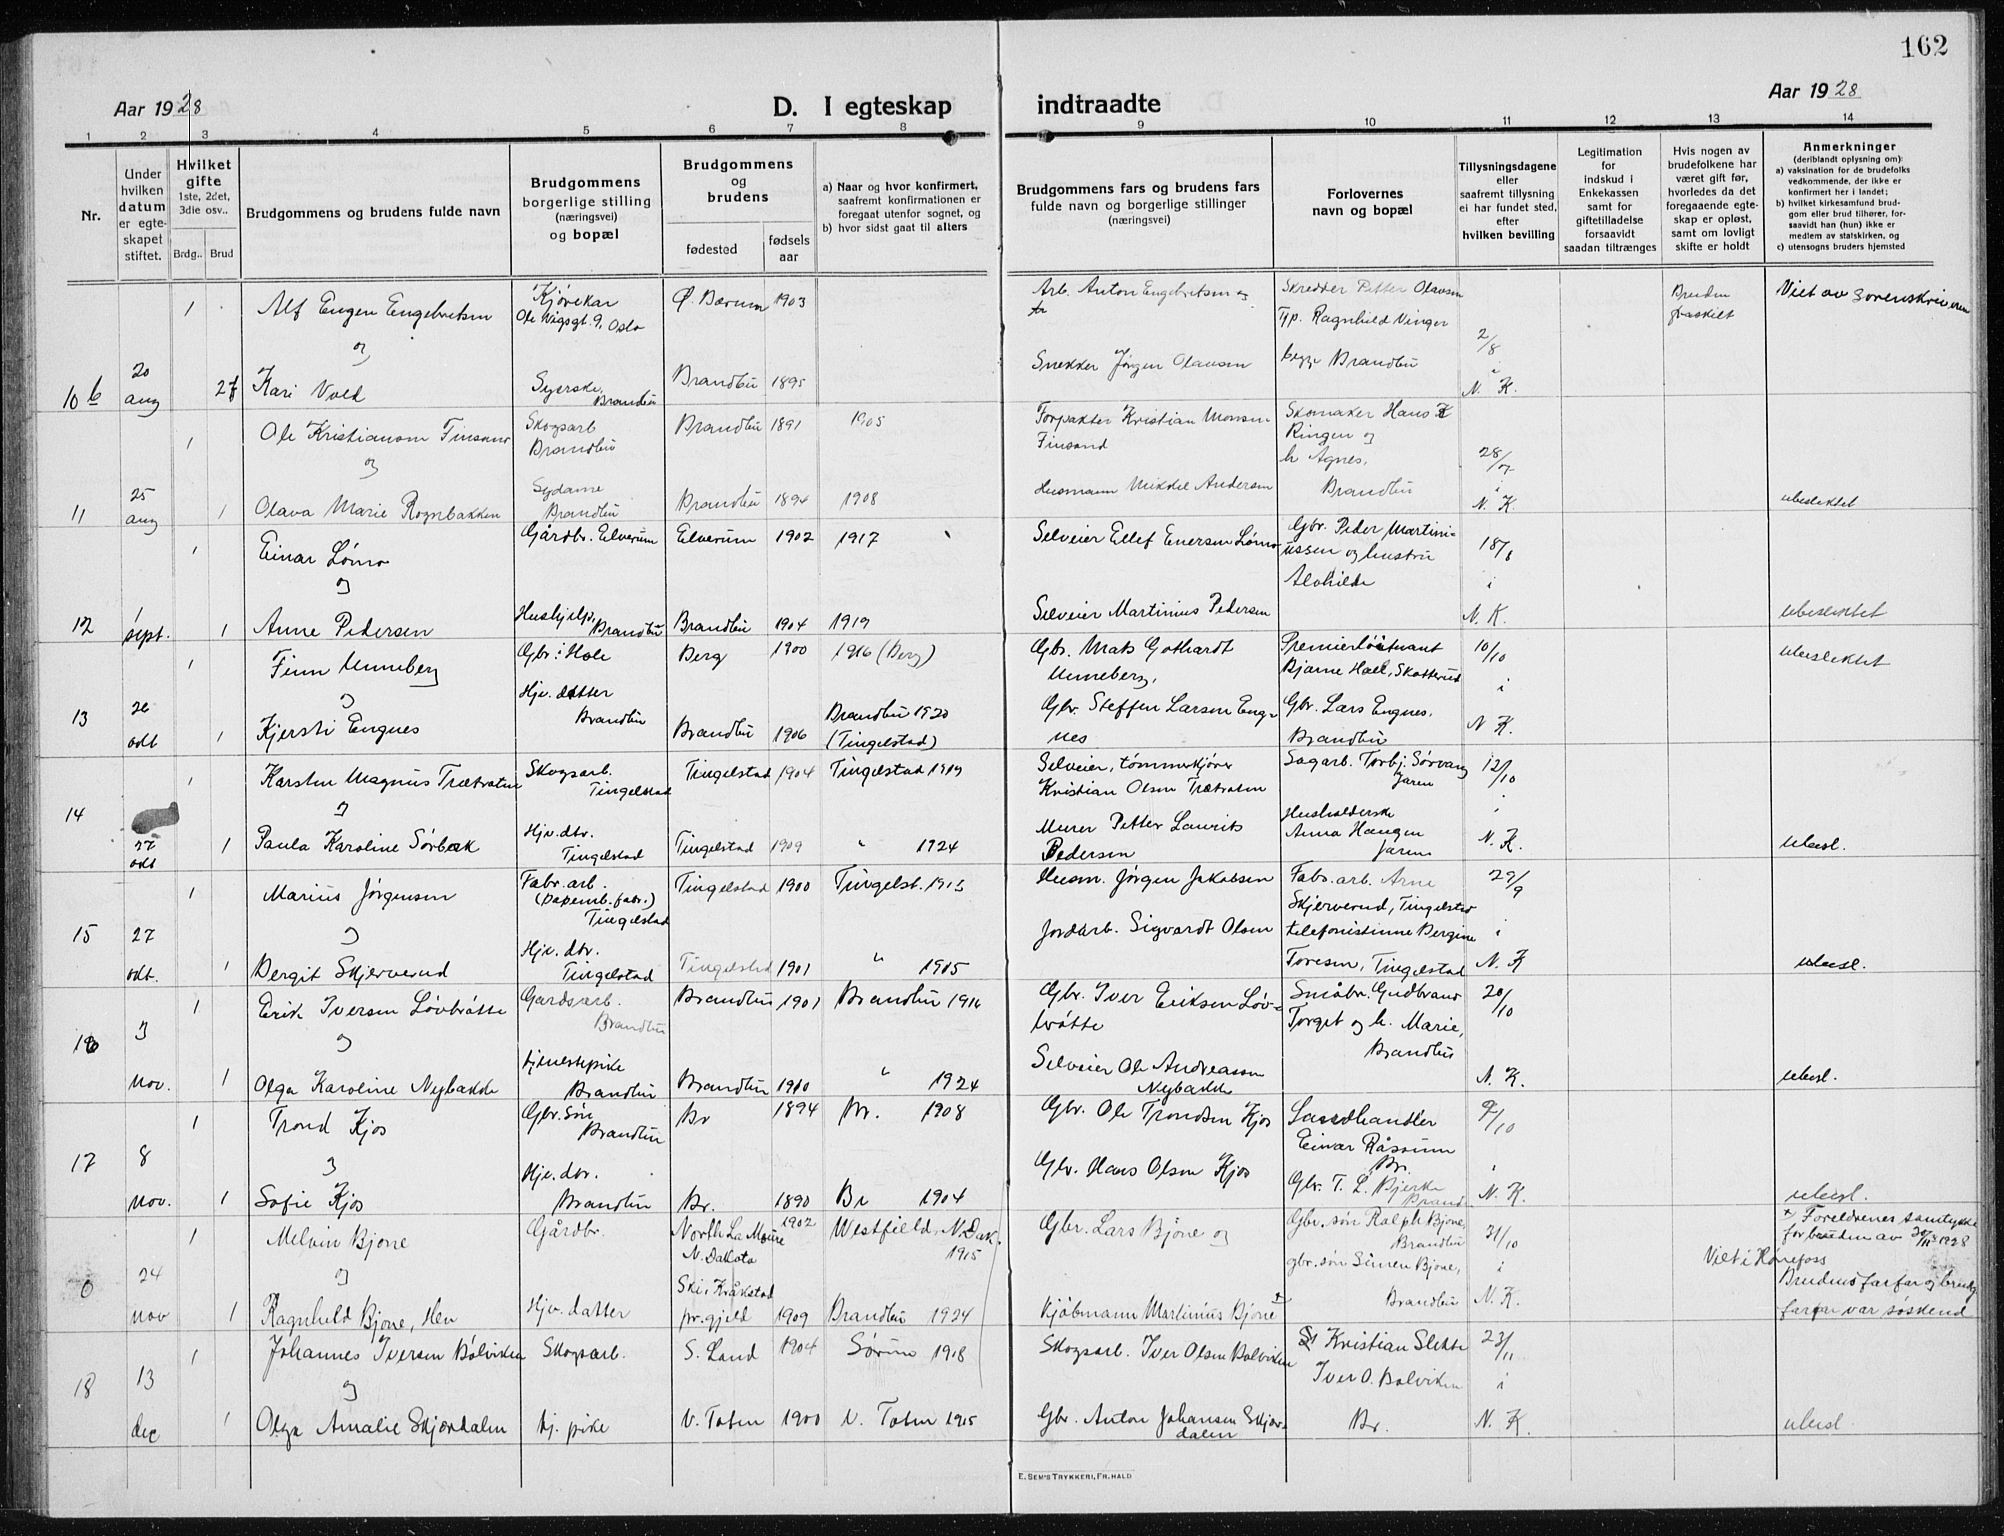 162
Aar 1928
D. I egteskap indtraadte
Aar 1928
1 2 3 4 5 6 7 8 9 10 11 12 13 14
Nr.
Under hvilken datum er egteskapet stiftet.
Hvilket gifte 1ste, 2det, 3die osv..
Brdg.. Brud
Brudgommens og brudens fulde navn
Brudgommens borgerlige stilling (næringsvei) og bopæl
Brudgommens og brudens
fødested
fødselsaar
a) Naar og hvor konfirmert, saafremt konfirmationen er foregaat utenfor sognet, og
b) hvor sidst gaat til alters
Brudgommens fars og brudens fars fulde navn og borgerlige stillinger (næringsvei)
Forlovernes navn og bopæl
Tillysningsdagene eller saafremt tillysning ei har fundet sted, efter hvilken bevilling
Legitimation for indskud i Enkekassen samt for giftetilladelse forsaavidt saadan tiltrænges
Hvis nogen av brudefolkene har været gift før, hvorledes da det foregaaende egteskap er opløst, samt om lovligt skifte er holdt
Anmerkninger (deriblandt oplysning om):
a) vaksination for de brudefolks vedkommende, der ikke er konfirmert her i landet;
b) hvilket kirkesamfund brudgom eller brud tilhører, forsaavidt han (hun) ikke er medlem av statskirken, og
c) utensogns bruders hjemsted
1 Alf Eugen Engebretsen Ole Vigsgt. 9, Oslo Ø. Bærum 1903 Arb. Anton Engebretsen og Skredder Petter Olavsen Viet av Sorenskriveren
og Ragnhild Vinger
10 b 20 aug Kari Vold Syerske, Brandbu Brandbu 1895 Snekker Jørgen Olausen begge Brandbu 2/8 i N. K.
1 Ole Kristiansen Finsand Skogsarb Brandbu Brandbu 1891 1905 Forpakter Kristian Monsen Finsand Skomaker Hans K Ringen og
og h Agnes, 28/7
11 25 aug 1 Olava Marie Rognbakken Sydame Brandbu Brandbu 1894 1908 Husmann Mikkel Andersen Brandbu i N. K. ubeslektet
1 Einar Lømo Gårdbr. Elverum Elverum 1902 1917 Selveier Ellef Enersen Lømo Gbr. Peder Martiniussen og hustru 18/8
og Alvhilde i
12 1 sept. 1 Anne Pedersen Hushjelp, Brandbu Brandbu 1904 1919 Selveier Martinius Pedersen N. K. ubeslektet
1 Finn Unneberg Gbr. i Hole Berg 1900 1916 (Berg) Gbr. Mats Gothardt Unneberg, Premierløitnant Bjarne Hall, Skotterud 10/10 ubeslektet
og i
13 20 okt 1 Kjersti Engnes Hjv. datter Brandbu Brandbu 1906 Brandbu 1920 (Tingelstad) Gbr. Steffen Larsen Engnes Gbr. Lars Engnes, Brandbu N. K.
1 Karsten Magnus Trætraten Skogsarb. Tingelstad Tingelstad 1904 Tingelstad 1919 Selveier, tømmerkjører Kristian Olsen Trætraten Sagarb. Torbj. Sørvang Jaren 12/10
og i
14 27 okt 1 Paula Karoline Sørbak Hjv. dtr. Tingelstad Tingelstad 1909 " 1924 Murer Petter Laurits Pedersen Husholderske Anna Haugen Jaren N. K. ubesl.
1 Marius Jørgensen Fabr. arb. Tingelstad Tingelstad 1900 Tingelst. 1915 Husm. Jørgen Jakobsen Fabr. arb. Arne Skjerverud, Tingelstad 29/9
og i
15 27 okt. 1 Bergit Skjerverud Hjv. dtr. Tingelstad Tingelstad 1901 " 1915 Jordarb. Sigvardt Olsen telefonistinne Bergine Foresen, Tingelstad N. K ubesl.
1 Erik Iversen Løvbråtte Gardsarb. Brandbu Brandbu 1901 Brandbu 1916 Gbr. Iver Eriksen Løvbråtte Småbr. Gudbrand Torget og h. Marie, Brandbu 20/10
og
16 3 nov. 1 Olga Karoline Nybakke tjenestepike Brandbu Brandbu 1910 " 1924 Selveier Ole Andreassen Nybakke N. K. ubesl.
1 Trond Kjos Gbr. søn Brandbu Br 1894 Br. 1908 Gbr. Ole Trondsen Kjos Einar Råssum Br. 9/10
og i
17 8 nov. 1 Sofie Kjos Hjv. dtr. Brandbu Br. 1890 Br 1904 Gbr. Hans Olsen Kjos Gbr. T. L. Bjerke Brand N. K. ubesl.
1 Melvin Bjone Gårdbr. North La Moure N. Dakota 1902 Westfield, N. Dak. 1915 Gbr. Lars Bjone og Gbr. søn Ralph Bjone, Brandbu 31/10 + Foreldrenes samtykke for bruden av 30/11 1928
og gbr. søn Simen Bjone, i Viet i Hønefoss
0 24 nov 1 Ragnhild Bjone, Hen Hjv. datter Ski i Kråkstad pr.gjeld 1909 Brandbu 1924 Kjøbmann Martinius Bjone + Brandbu N. K. Brudens farfar og brudg farfar var søskend
1 Johannes Iversen Bolviken Skogsarb. S. Land 1904 Sørum 1918 Skogsarb. Iver Olsen Bolviken Kristian Slette 23/11
og Iver O. Bolviken i
18 13 dec 1 Olga Amalie Skjærdalen tj. pike V. Toten 1900 V. Toten 1915 Gbr. Anton Johansen Skjærdalen Br. N. K. ubesl.
E. SEM'S TRYKKERI, FR. HALD